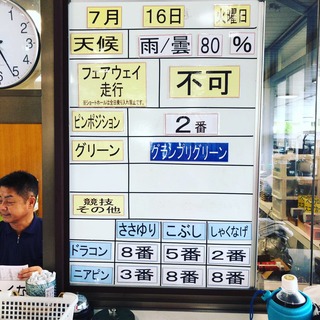 7月 16日 火曜日
天候 雨/曇 80 %
フェアウェイ
走行 不可
ピンポジション 2番
グリーン グランプリグリーン
競技
その他
ささゆり こぶし しゃくなげ
ドラコン 8番 5番 2番
ニアピン 3番 8番 8番